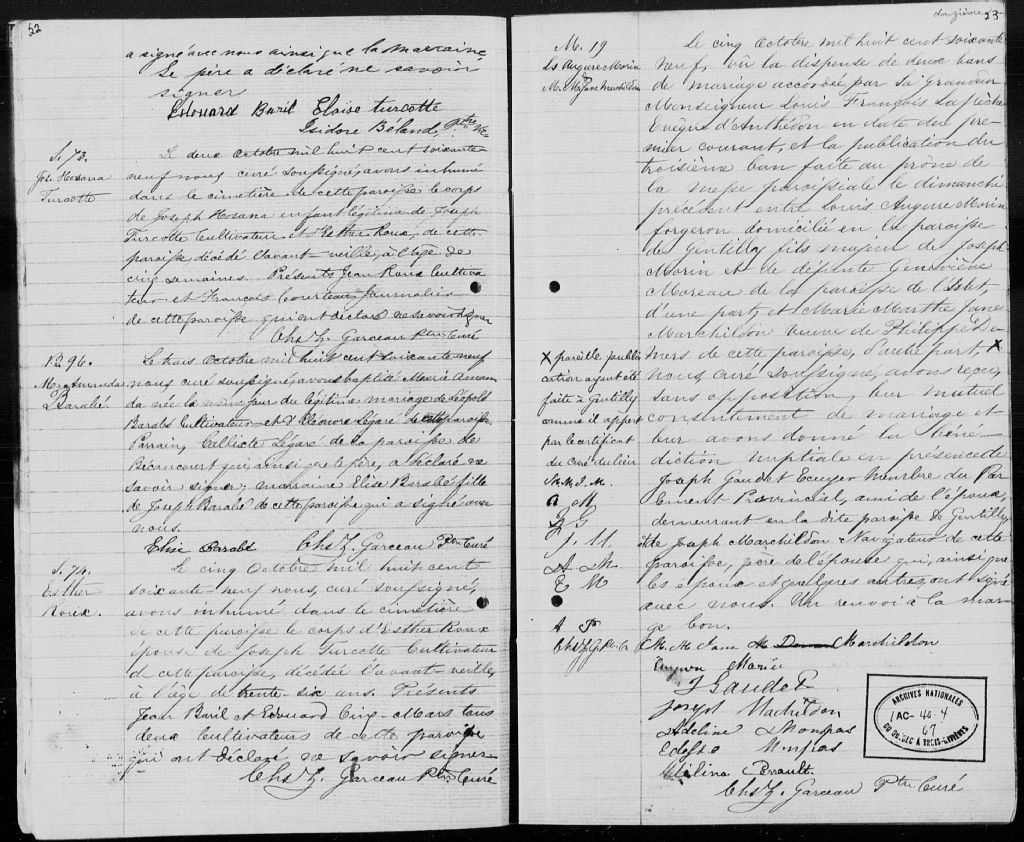 52
a signé avec nous ainsi que la marraine
Le père a déclaré ne savoir
signer
Edouard Baril Eloise Turcotte
Isidore Béland, Ptre
S. 73.
Jos. Hosana
Turcotte
Le deux Octobre mil huit cent soixante-
neuf nous curé soussigné, avons inhumé
dans le cimetière de cette paroisse le corps
de Joseph Hosana enfant légitime de Joseph
Turcotte Cultivateur et d'Esther Roux, de cette
paroisse, décédé l'avant-veille, à l'âge de
cinq semaines. Présents Jean Roux Cultiva
teur et François Courteau Journalier
de cette paroisse qui ont déclaré ne savoir signer
Chs Z. Garceau Ptre Curé
B. 96.
M. Amanda
Barabé.
Le trois Octobre mil huit cent soixante-neuf
nous curé soussigné, avons baptisé Marie Aman
da née le même jour du légitime mariage de Léopold
Barabé Cultivateur et d'Eléonore Légaré de cette paroisse
Parrain, Calliste Légaré de la paroisse de
Bécancourt qui, ainsi que le père, a déclaré ne
savoir signer; marraine Elise Barabé fille
de Joseph Barabé de cette paroisse qui a signé avec
nous.
Elise Barabé Chs Z. Garceau Ptre Curé
S. 74.
Esther
Roux.
Le cinq Octobre mil huit cent
soixante-neuf nous, curé soussigné,
avons inhumé dans le cimetière
de cette paroisse le corps d'Esther Roux
épouse de Joseph Turcotte Cultivateur
de cette paroisse, décédée l'avant-veille,
à l'âge de trente-six ans. Présents
Jean Baril et Edouard Cinq-Mars tous
deux Cultivateurs de cette paroisse
qui ont déclaré ne savoir signer
Chs Z. Garceau Ptre Curé
douzième 53
M. 19
Ls Augure Morin
M. Mthe Jane Marchildon
Le cinq Octobre mil huit cent soixante
neuf, vu la dispense de deux bans
de mariage accordée par Sa Grandeur
Monseigneur Louis François Laflèche
Evêque d'Anthédon en date du pre-
mier courant, et la publication du
troisième ban faite au prône de
la messe paroissiale le dimanche
précédent entre Louis Augure Morin
forgeron domicilié en la paroisse
de Gentilly fils majeur de Joseph
Morin et de défunte Geneviève
Moreau de la paroisse de l'Islet,
d'une part, et Marie Marthe Jane
Marchildon veuve de Philippe De
mers de cette paroisse, d'autre part, X
nous, curé soussigné, avons reçu
sans opposition, leur mutuel
consentement de mariage et
leur avons donné la béné-
diction nuptiale en présence de
Joseph Gaudet Ecuyer membre du Par
lement Provincial, ami de l'époux,
demeurant en la dite paroisse de Gentilly
et de Joseph Marchildon Navigateur de cette
paroisse, père de l'épouse qui, ainsi que
les époux et quelques autres, ont signé
avec nous. Un renvoi à la mar
ge bon.
X pareille publi
cation ayant été
faite à Gentilly
comme il appert
par le certificat
du curé du lieu
M. M. J. M.
A M
J. G
J. M.
A. M.
E M
A P
Chs Z. G. Ptre C.
M. M. Jane Marchildon
Morin
J Gaudet
Joseph Machildon
Adeline Monpas
Monpas
Mélina Perrault.
Chs Z. Garceau Ptre Curé
ARCHIVES NATIONALES
AC-40-4
67
DU QUÉBEC À TROIS-RIVIÈRES